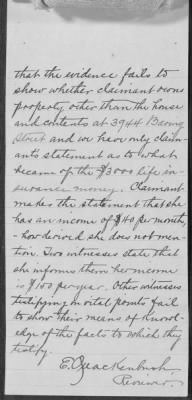 that the evidence fails to
show whether claimant owns
property other than the house
and contents at 3944 Baring
Street and we have only claim-
ant's statement as to what
became of the $3000 life in-
surance money. Claimant
makes the statement that she
has an income of $40 per month,
- how derived she does not men-
tion. Two witnesses state that
she informs them her income
is $100 per year. Other witnesses
testifying on vital points fail
to show their means of knowl-
edge of the facts to which they
testify.
E. Quackenbush,
Reviewer.